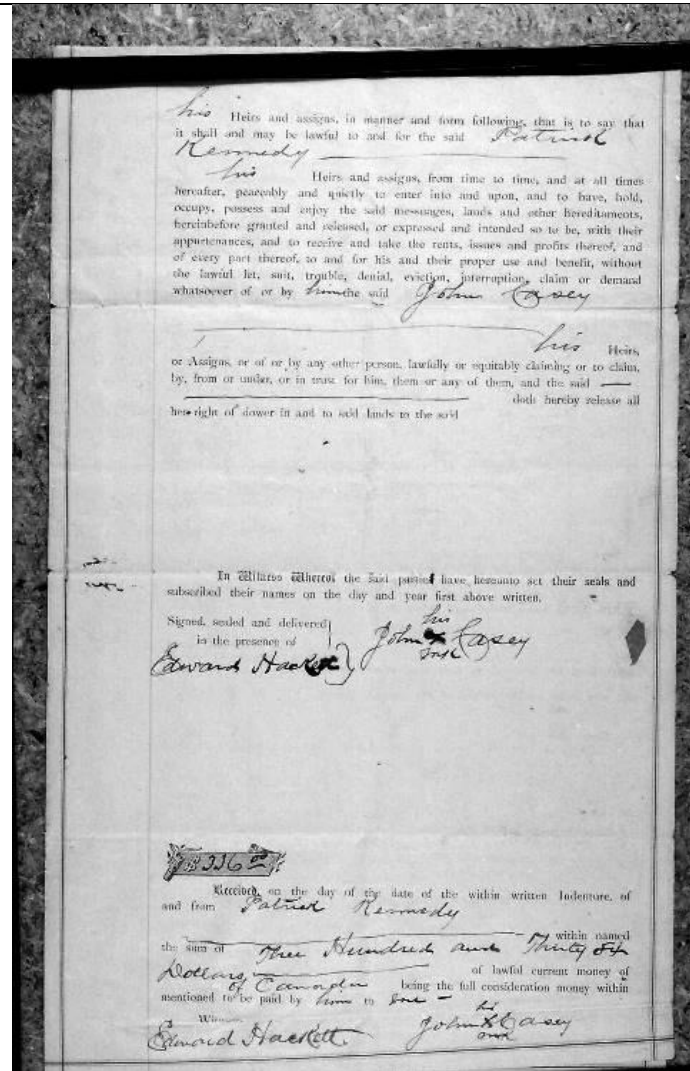 his Heirs and assigns, in manner and form following, that is to say that
it shall and may be lawful to and for the said Patrick
Kennedy
his Heirs and assigns, from time to time, and at all times
hereafter, peaceably and quietly to enter into and upon, and to have, hold,
occupy, possess and enjoy the said messuages, lands and other hereditaments,
hereinbefore granted and released, or expressed and intended so to be, with their
appurtenances, and to receive and take the rents, issues and profits thereof, and
of every part thereof, to and for his and their proper use and benefit, without
the lawful let, suit, trouble, denial, eviction, interruption, claim or demand
whatsoever of or by him the said John Casey
his Heirs,
or Assigns, or of or by any other person, lawfully or equitably claiming or to claim,
by, from or under, or in trust for him, them or any of them, and the said
doth hereby release all
her right of dower in and to said lands to the said
In Witness Whereof the said parties have hereunto set their seals and
subscribed their names on the day and year first above written.
Signed, sealed and delivered
in the presence of
his
John X Casey
mark
Edward Hackett
$336 00
Received, on the day of the date of the within written Indenture, of
and from Patrick Kennedy
within named
the sum of Three Hundred and Thirty Six
Dollars of lawful current money of
of Canada being the full consideration money within
mentioned to be paid by him to me
his
John X Casey
mark
Edward Hackett